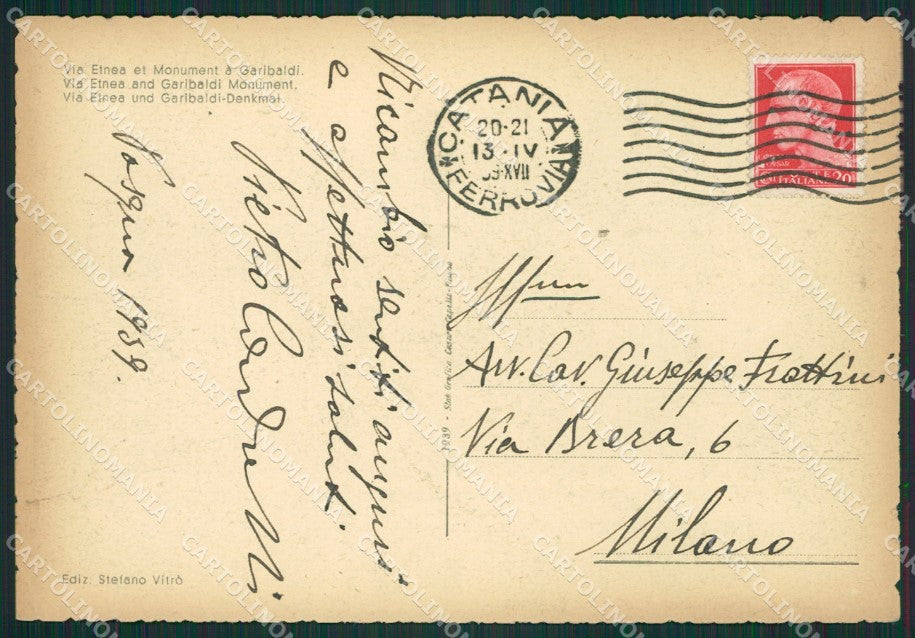 Via Etnea et Monument à Garibaldi.
Via Etnea and Garibaldi Monument.
Via Etnea und Garibaldi-Denkmal.
Ricambio sentiti auguri
e affettuosi saluti.
Pietro
Pasqua 1939.
Ediz. Stefano Vitrò
1939
CATANIA
20-21
13 IV
39-XVII
FERROVIA
20
ITALIANE
Avv. Cav. Giuseppe Frattini
Via Brera, 6
Milano
CARTOLINOMANIA